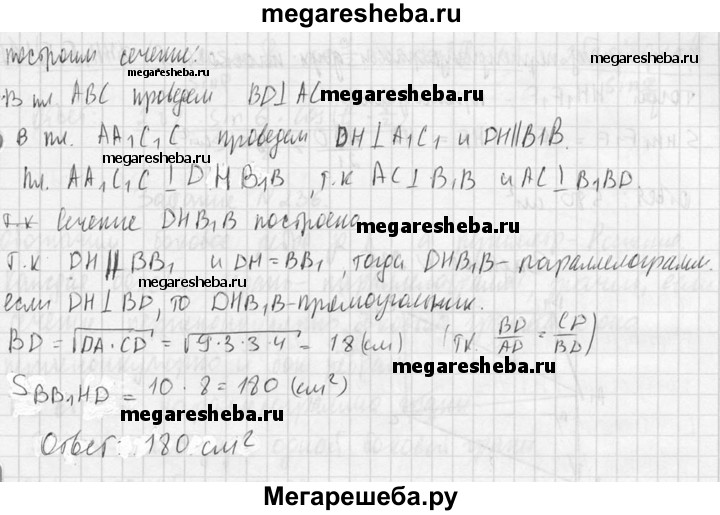 megaresheba.ru
построим сечение:
megaresheba.ru
megaresheba.ru
В пл. ABC проведем BD⊥AC
megaresheba.ru
В пл. AA₁C₁C проведем DH⊥A₁C₁ и DH||B₁B.
megaresheba.ru
Пл. AA₁C₁C ⊥ DHB₁B, т.к AC⊥B₁B и AC⊥B₁BD.
т.к Сечение DHB₁B построена
megaresheba.ru
Т.к DH||BB₁ и DH=BB₁, тогда DHB₁B-параллелограмм.
megaresheba.ru
если DH⊥BD, то DHB₁B-прямоугольник.
BD = √DA·CD = √9·3·3·4 = 18 (см) (т.к. BD/AD = CD/BD)
megaresheba.ru
S BB₁HD = 10 · 8 = 180 (см²)
megaresheba.ru
Ответ: 180 см²
megaresheba.ru
Мегарешеба.ру